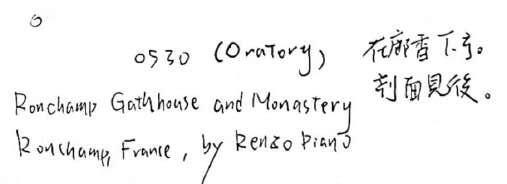 0530 (Oratory)
Ronchamp Gathhouse and Monastery
Ronchamp, France, by Renzo Piano
剖面見後。